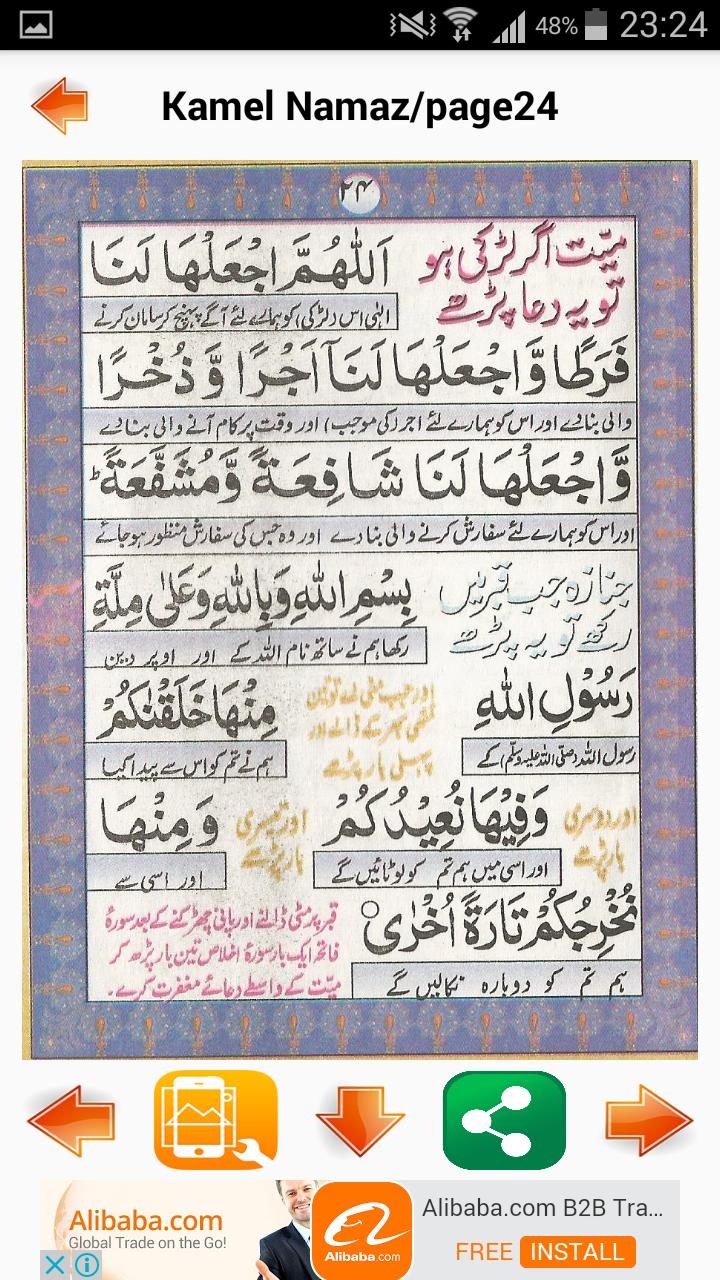 48% 23:24
Kamel Namaz/page24
۲۴
میّت اگر لڑکی ہو
تو یہ دعا پڑھے
اَللّٰهُمَّ اجْعَلْهَا لَنَا
الٰہی اس (لڑکی) کو ہمارے لئے آگے پہنچ کر سامان کرنے
فَرَطًا وَّاجْعَلْهَا لَنَآ اَجْرًا وَّ ذُخْرًا
والی بنا دے اور اس کو ہمارے لئے اجر (کی موجب) اور وقت پر کام آنے والی بنا دے
وَّاجْعَلْهَا لَنَا شَافِعَةً وَّمُشَفَّعَةً ؕ
اور اس کو ہمارے لئے سفارش کرنے والی بنا دے اور وہ جس کی سفارش منظور ہو جائے
جنازہ جب قبر میں
رکھے تو یہ پڑھے
بِسْمِ اللّٰهِ وَبِاللّٰهِ وَعَلٰى مِلَّةِ
رکھا ہم نے ساتھ نام اللہ کے اور اوپر دین
رَسُوْلِ اللّٰهِ
رسول اللہ (صلی اللہ علیہ وسلم) کے
اور جب مٹی دے تو تین
مٹھی بھر کے ڈالے اور
پہلی بار پڑھے
مِنْهَا خَلَقْنٰكُمْ
ہم نے تم کو اس سے پیدا کیا
اور دوسری
بار پڑھے
وَفِيْهَا نُعِيْدُكُمْ
اور اسی میں ہم تم کو لوٹائیں گے
اور تیسری
بار پڑھے
وَ مِنْهَا
اور اسی سے
نُخْرِجُكُمْ تَارَةً اُخْرٰى ○
ہم تم کو دوبارہ نکالیں گے
قبر پر مٹی ڈالنے اور پانی چھڑکنے کے بعد سورۂ
فاتحہ ایک بار سورۂ اخلاص تین بار پڑھ کر
میّت کے واسطے دعائے مغفرت کرے۔
Alibaba.com
Global Trade on the Go!
Alibaba.com
Alibaba.com B2B Tra...
FREE INSTALL